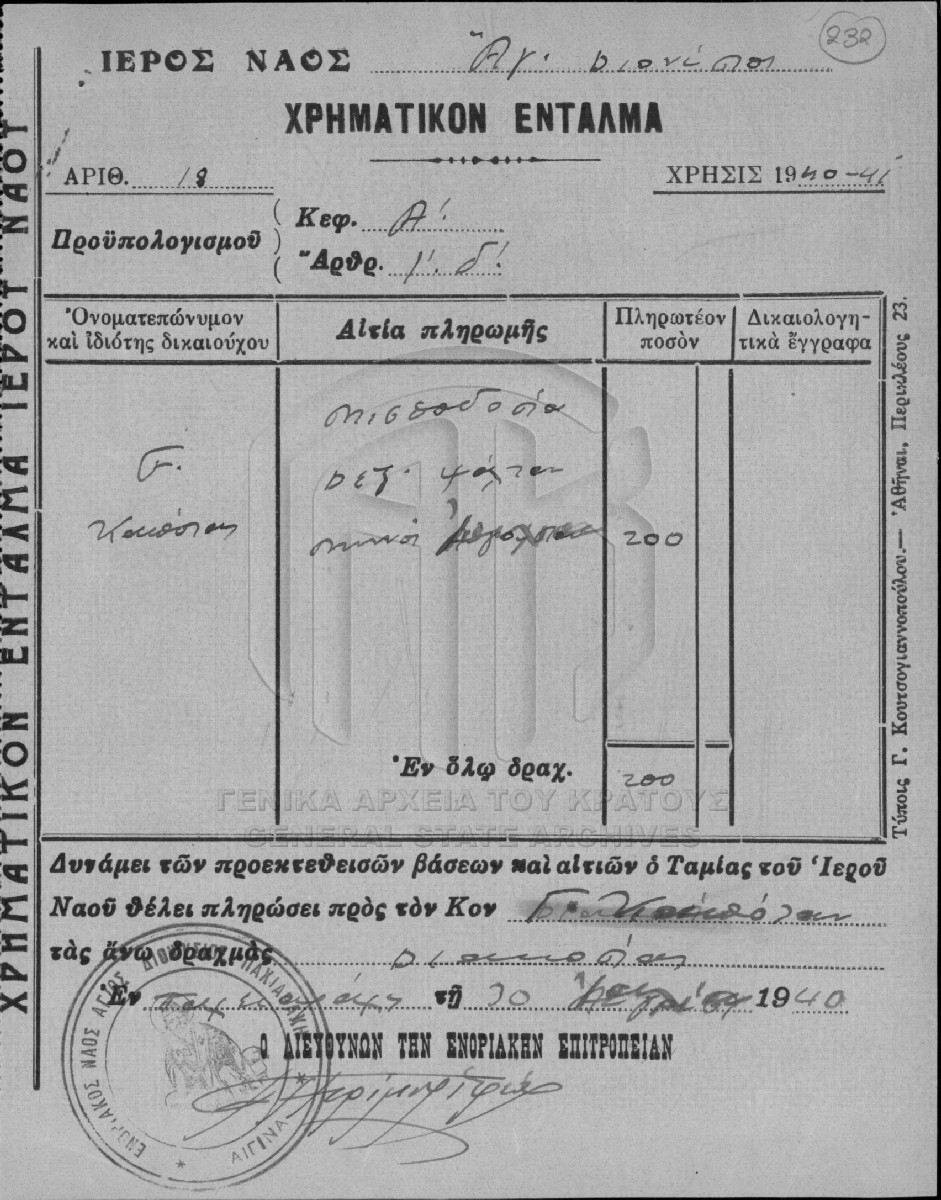 232
ΙΕΡΟΣ ΝΑΟΣ Ἅγ. Διονύσιος
ΧΡΗΜΑΤΙΚΟΝ ΕΝΤΑΛΜΑ
ΑΡΙΘ. 18
ΧΡΗΣΙΣ 1940-41
Προϋπολογισμοῦ
Κεφ. Α΄.
Ἄρθρ. γ΄. δ΄.
Ὀνοματεπώνυμον καὶ ἰδιότης δικαιούχου
Αἰτία πληρωμῆς
Πληρωτέον ποσὸν
Δικαιολογητικὰ ἔγγραφα
μισθοδοσία
Γ.
δεξ. ψάλτου
μηνὸς
200
Ἐν ὅλῳ δραχ. 200
ΓΕΝΙΚΑ ΑΡΧΕΙΑ ΤΟΥ ΚΡΑΤΟΥΣ
GENERAL STATE ARCHIVES
Δυνάμει τῶν προεκτεθεισῶν βάσεων καὶ αἰτιῶν ὁ Ταμίας τοῦ Ἱεροῦ
Ναοῦ θέλει πληρώσει πρὸς τὸν Κον
τὰς ἄνω δραχμὰς διακοσίας
Ἐν τῇ 30 1940
Ὁ ΔΙΕΥΘΥΝΩΝ ΤΗΝ ΕΝΟΡΙΑΚΗΝ ΕΠΙΤΡΟΠΕΙΑΝ
ΕΝΟΡΙΑΚΟΣ ΝΑΟΣ ΑΓΙΟΣ ΔΙΟΝΥΣΙΟΣ ΠΑΧΙΑΣ ΡΑΧΗΣ
* ΑΙΓΙΝΑ *
ΧΡΗΜΑΤΙΚΟΝ ΕΝΤΑΛΜΑ ΙΕΡΟΥ ΝΑΟΥ
Τύποις Γ. Κουτσογιαννοπούλου.— Ἀθῆναι, Περικλέους 23.